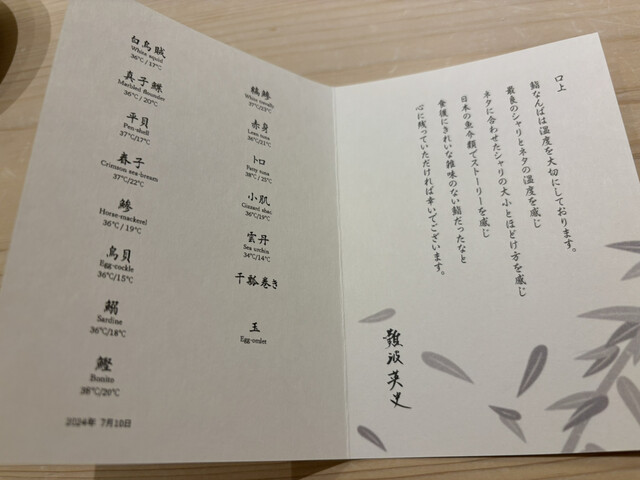 白烏賊
White squid
36℃/17℃
真子鰈
Marbled flounder
36℃/20℃
平貝
Pen-shell
37℃/17℃
春子
Crimson sea-bream
37℃/22℃
鯵
Horse-mackerel
36℃/19℃
鳥貝
Egg-cockle
36℃/15℃
鰯
Sardine
36℃/18℃
鰹
Bonito
38℃/20℃
2024年 7月10日
縞鯵
White trevally
37℃/23℃
赤身
Lean tuna
36℃/21℃
トロ
Fatty tuna
38℃/21℃
小肌
Gizzard shad
36℃/19℃
雲丹
Sea urchin
34℃/14℃
干瓢巻き
玉
Egg-omlet
口上
鮨なんばは温度を大切にしております。
最良のシャリとネタの温度を感じ
ネタに合わせたシャリの大小とほどけ方を感じ
日本の魚介類でストーリーを感じ
食後にきれいな雑味のない鮨だったなと
心に残っていただければ幸いでございます。
難波英史